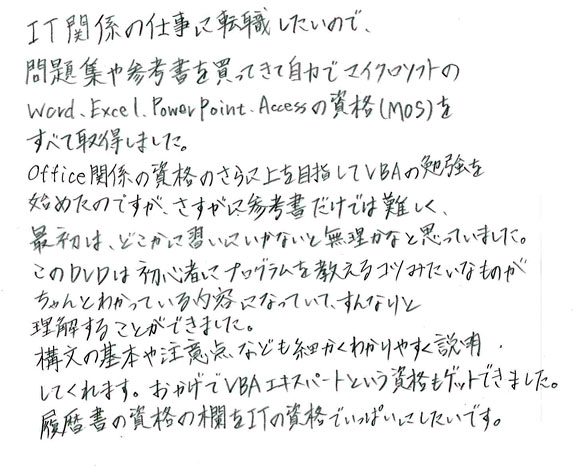 IT関係の仕事に転職したいので、
問題集や参考書を買ってきて自力でマイクロソフトの
Word、Excel、PowerPoint、Accessの資格(MOS)を
すべて取得しました。
Office関係の資格のさらに上を目指してVBAの勉強を
始めたのですが、さすがに参考書だけでは難しく、
最初は、どこかに習いにいかないと無理かなと思っていました。
このDVDは初心者にプログラムを教えるコツみたいなものが
ちゃんとわかっている内容になっていて、すんなりと
理解することができました。
構文の基本や注意点なども細かくわかりやすく説明
してくれます。おかげでVBAエキスパートという資格もゲットできました。
履歴書の資格の欄をITの資格でいっぱいにしたいです。